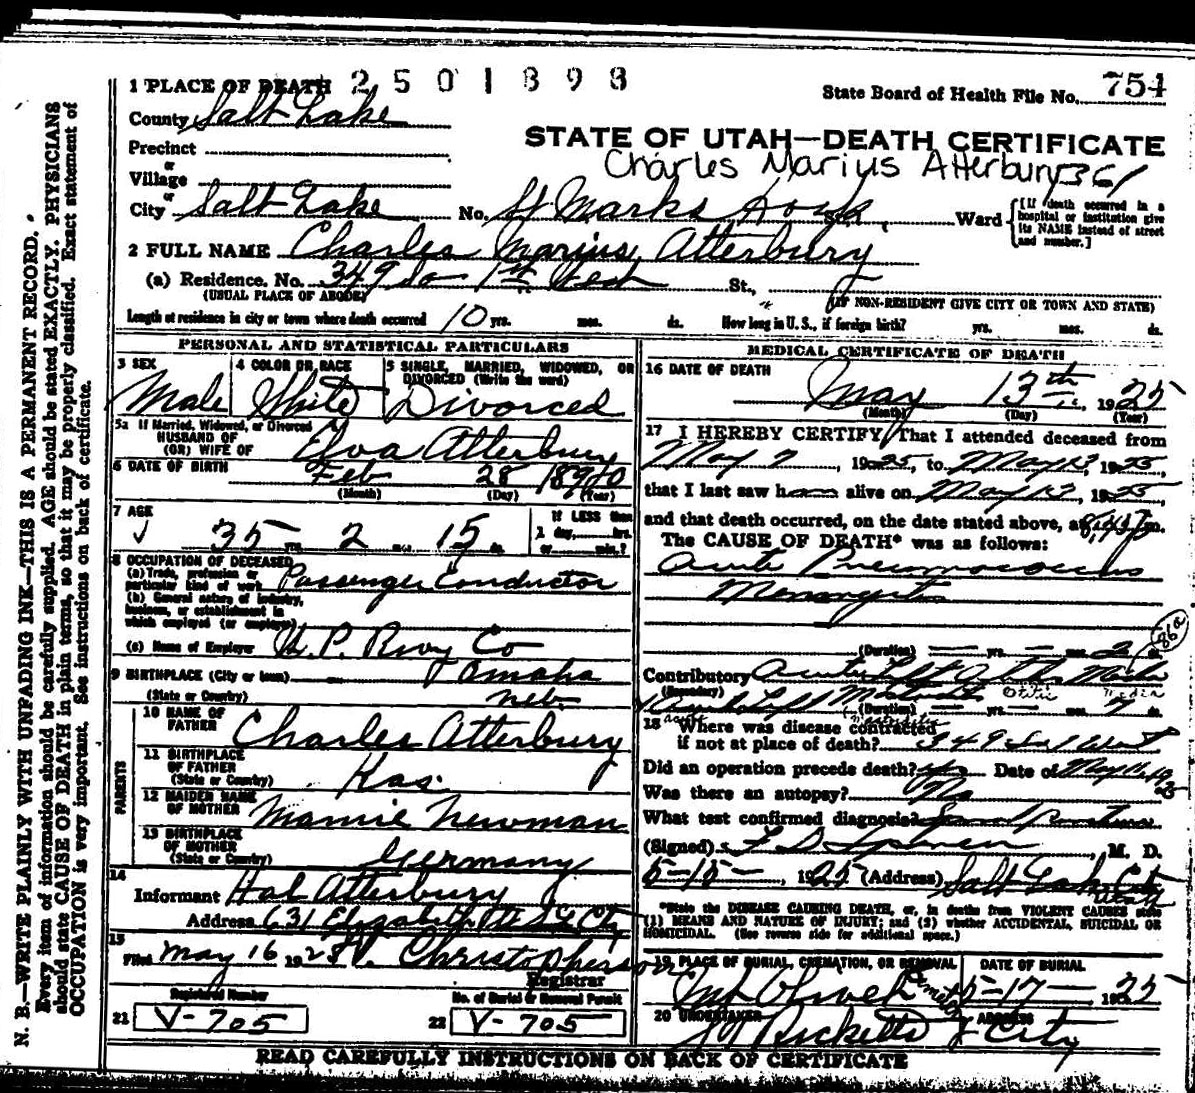 N. B.—WRITE PLAINLY WITH UNFADING INK—THIS IS A PERMANENT RECORD.
Every item of information should be carefully supplied. AGE should be stated EXACTLY. PHYSICIANS
should state CAUSE OF DEATH in plain terms, so that it may be properly classified. Exact statement of
OCCUPATION is very important. See instructions on back of certificate.
1 PLACE OF DEATH 2501898
State Board of Health File No. 754
County Salt Lake
STATE OF UTAH—DEATH CERTIFICATE
Precinct
Charles Marius Atterbury
or
Village
or
City Salt Lake No. St Marks Hosp St., Ward
[If death occurred in a
hospital or institution give
its NAME instead of street
and number.]
2 FULL NAME Charles Marius Atterbury
(a) Residence. No. 349 So 1st West St.,
(USUAL PLACE OF ABODE) (IF NON-RESIDENT GIVE CITY OR TOWN AND STATE)
Length of residence in city or town where death occurred 10 yrs. mos. ds. How long in U. S., if foreign birth? yrs. mos. ds.
PERSONAL AND STATISTICAL PARTICULARS
3 SEX 4 COLOR OR RACE 5 SINGLE, MARRIED, WIDOWED, OR
DIVORCED (Write the word)
Male White Divorced
5a If Married, Widowed, or Divorced
HUSBAND OF
(OR) WIFE OF Elva Atterbury
6 DATE OF BIRTH Feb 28 1890
(Month) (Day) (Year)
7 AGE If LESS than
1 day, hrs.
35 yrs. 2 mos. 15 ds. or min.?
8 OCCUPATION OF DECEASED
(a) Trade, profession or
particular kind of work Passenger Conductor
(b) General nature of industry,
business, or establishment in
which employed (or employer)
(c) Name of Employer U. P. Rwy Co
9 BIRTHPLACE (City or town) Omaha
(State or Country) Neb.
PARENTS
10 NAME OF
FATHER Charles Atterbury
11 BIRTHPLACE
OF FATHER
(State or Country) Kas.
12 MAIDEN NAME
OF MOTHER Mamie Newman
13 BIRTHPLACE
OF MOTHER
(State or Country) Germany
14
Informant Hal Atterbury
Address 631 Elizabeth St SL Cty
15
Filed May 16 1925 Christopherson
Registrar
Registered Number No. of Burial or Removal Permit
21 V-705 22 V-705
MEDICAL CERTIFICATE OF DEATH
16 DATE OF DEATH
May 13th, 1925
(Month) (Day) (Year)
17 I HEREBY CERTIFY, That I attended deceased from
May 7, 1925, to May 13, 1925,
that I last saw him alive on May 13, 1925
and that death occurred, on the date stated above, at m.
The CAUSE OF DEATH* was as follows:
Acute Pneumococcus
Meningitis
86a
(Duration) yrs. mos. 2 ds.
Contributory Acute Left Otitis Media
(Secondary) Acute Left Mastoiditis Otitis Media
(Duration) yrs. mos. 7 ds.
18 Where was disease contracted
if not at place of death? 349 So 1 West
Did an operation precede death? yes Date of May 11, 1925
Was there an autopsy? No
What test confirmed diagnosis? Spinal Puncture
(Signed) F D Spencer, M. D.
5-15-, 1925 (Address) Salt Lake City
Utah
*State the DISEASE CAUSING DEATH, or, in deaths from VIOLENT CAUSES state
(1) MEANS AND NATURE OF INJURY; and (2) whether ACCIDENTAL, SUICIDAL OR
HOMICIDAL. (See reverse side for additional space.)
19 PLACE OF BURIAL, CREMATION, OR REMOVAL DATE OF BURIAL
Mt Olivet Cemetery 5-17-, 1925
20 UNDERTAKER ADDRESS
Ricketts City
READ CAREFULLY INSTRUCTIONS ON BACK OF CERTIFICATE